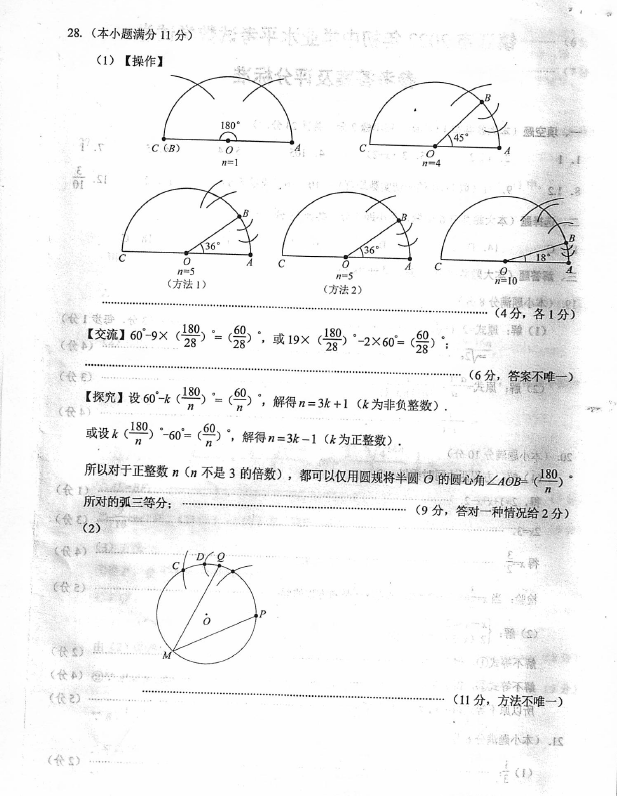 28.（本小题满分 11 分）
（1）【操作】
180°
C（B） O A
n=1
B
45°
C O A
n=4
B
36°
C O A
n=5
（方法 1）
B
36°
C O A
n=5
（方法 2）
B
18°
C O A
n=10
（4 分，各 1 分）
【交流】60°-9×（180/28）°=（60/28）°，或 19×（180/28）°-2×60°=（60/28）°；
（6 分，答案不唯一）
【探究】设 60°-k（180/n）°=（60/n）°，解得 n=3k+1（k 为非负整数）.
或设 k（180/n）°-60°=（60/n）°，解得 n=3k-1（k 为正整数）.
所以对于正整数 n（n 不是 3 的倍数），都可以仅用圆规将半圆 O 的圆心角∠AOB=（180/n）°
所对的弧三等分；（9 分，答对一种情况给 2 分）
（2）
C D Q
O P
M
（11 分，方法不唯一）